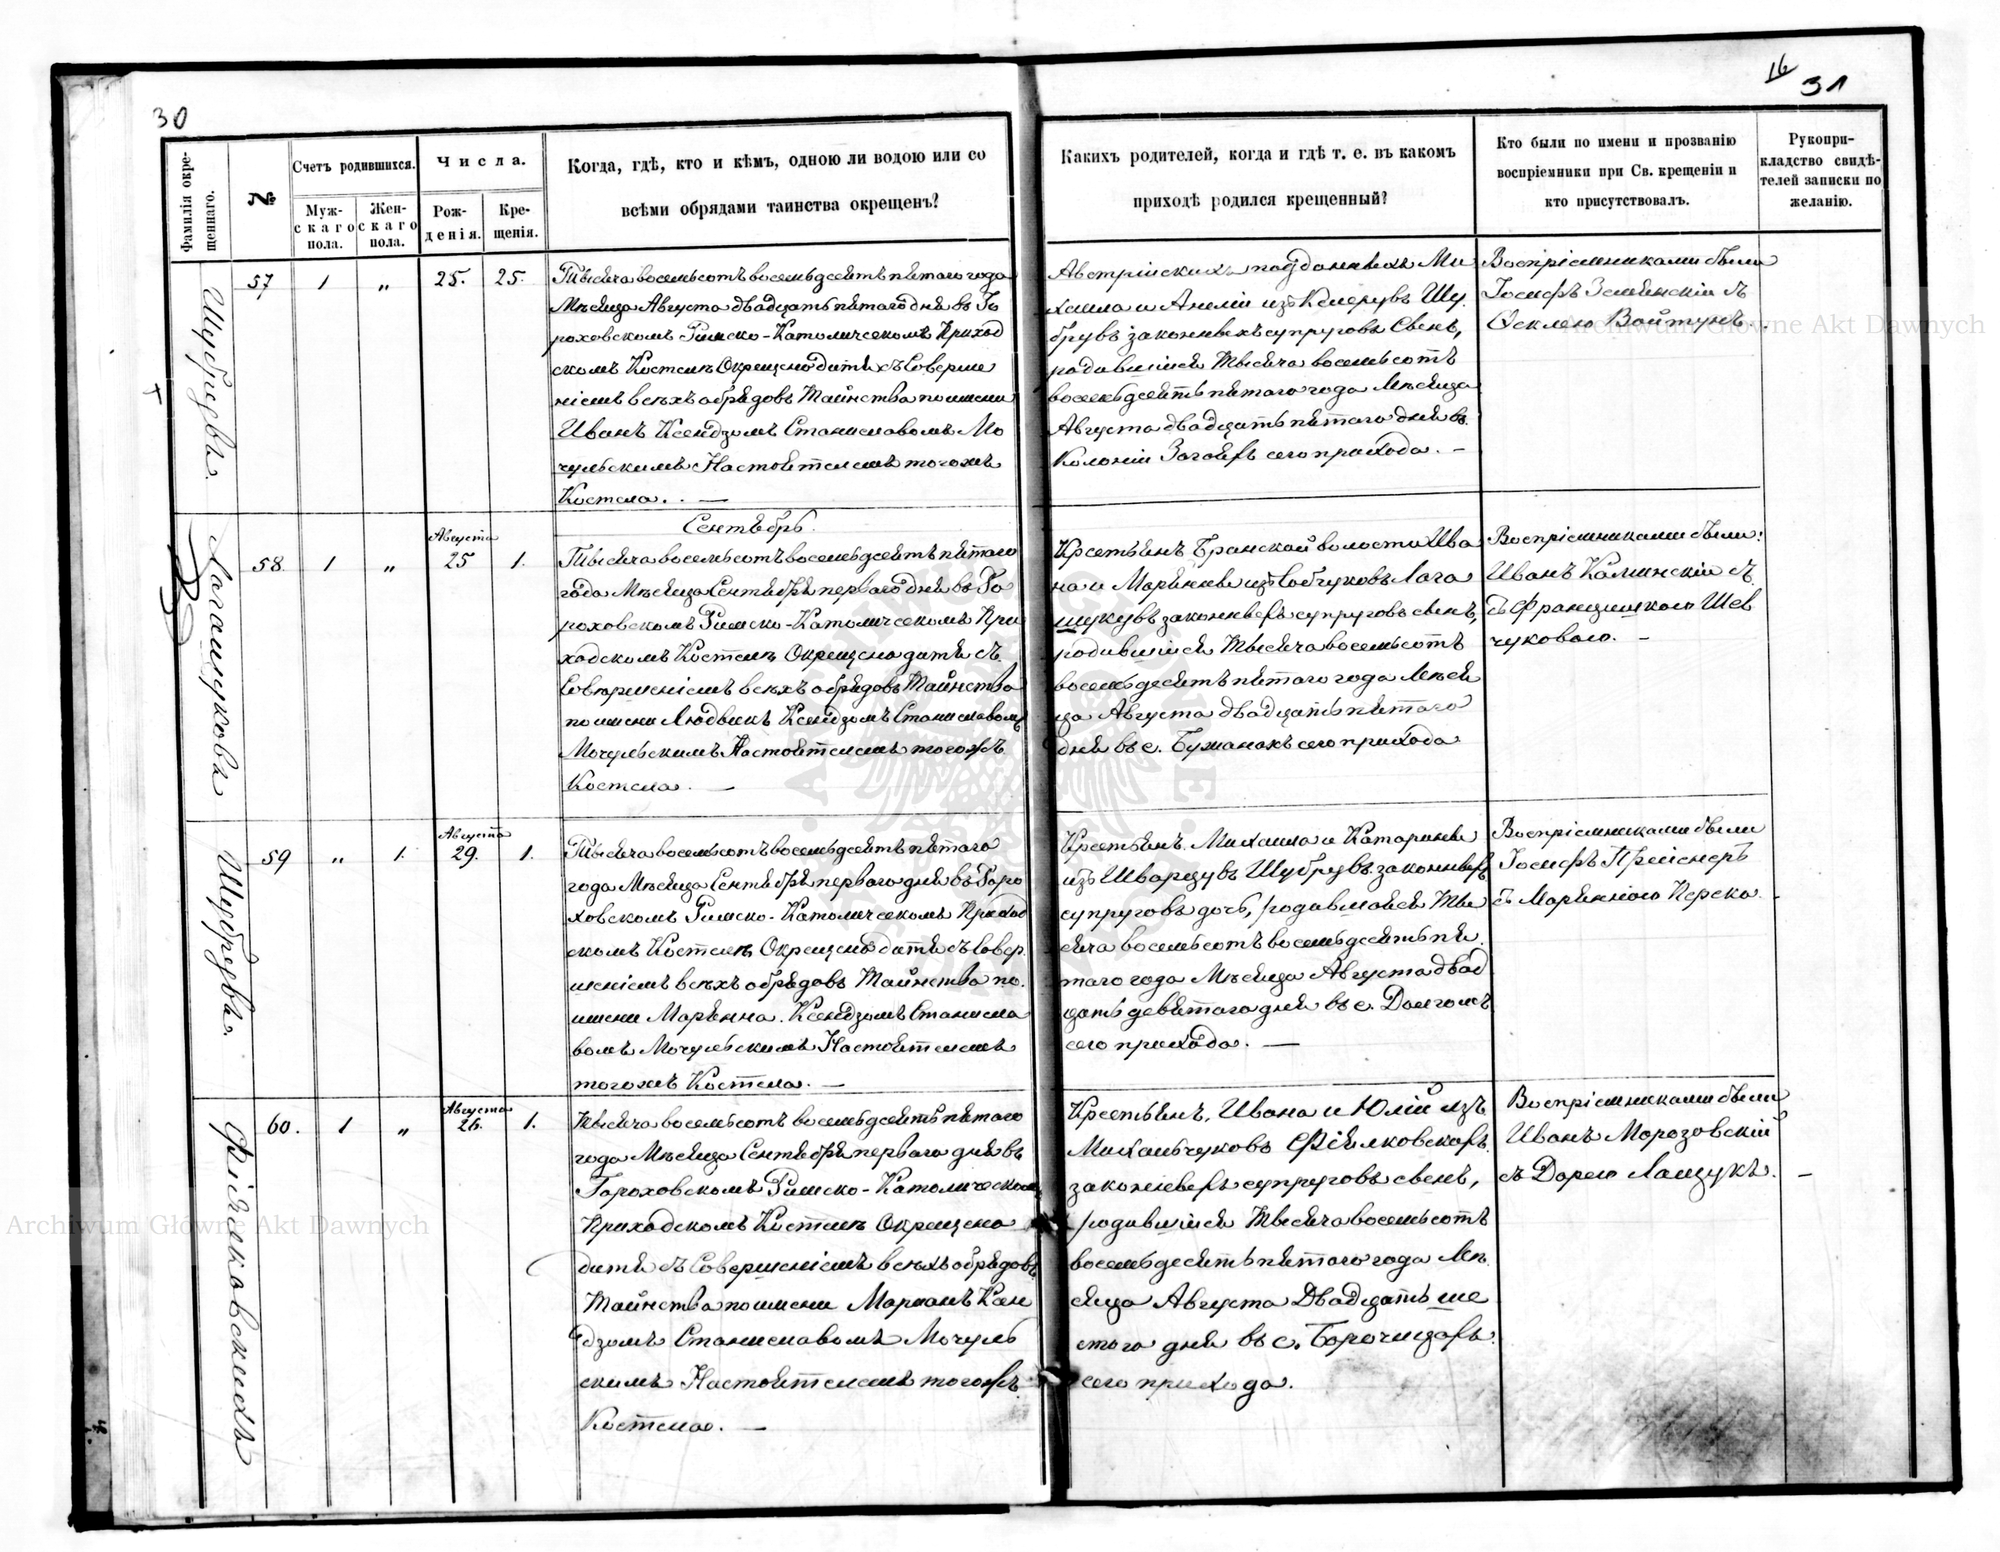 30
16
31
Фамилія окре-
щеннаго.
№
Счетъ родившихся.
Муж-
скаго
пола.
Жен-
скаго
пола.
Числа.
Рож-
денія.
Кре-
щенія.
Когда, гдѣ, кто и кѣмъ, одною ли водою или со
всѣми обрядами таинства окрещенъ?
Какихъ родителей, когда и гдѣ т. е. въ какомъ
приходѣ родился крещенный?
Кто были по имени и прозванію
воспріемники при Св. крещеніи и
кто присутствовалъ.
Рукопри-
кладство свидѣ-
телей записки по
желанію.
Шубрувъ.
57
1
„
25.
25.
Тысяча восемьсотъ восемьдесятъ пятаго года
Мѣсяца Августа двадцать пятаго дня въ Го
роховскомъ Римско-Католическомъ Приход
скомъ Костелѣ Окрещено дитя съ Соверше
ніемъ всѣхъ обрядовъ Таинства по имени
Иванъ Ксендзомъ Станиславомъ Мо
чульскимъ Настоятелемъ тогожъ
Костела. —
Австрійскихъ подданныхъ Ми
хаила и Анеліи изъ Шу
брувъ законныхъ супруговъ сынъ,
родившійся тысяча восемьсотъ
восемьдесятъ пятаго года Мѣсяца
Августа двадцать пятаго дня въ
Колоніи сего прихода. —
Воспріемниками были
Іосифъ Земянскій съ
Феклею Войтунъ.
Сентябрь.
Лагашукова
58.
1
„
Августа
25
1.
Тысяча восемьсотъ восемьдесятъ пятаго
года Мѣсяца Сентября перваго дня въ Го
роховскомъ Римско-Католическомъ При
ходскомъ Костелѣ Окрещено дитя съ
Совершеніемъ всѣхъ обрядовъ Таинства
по имени Людвикъ Ксендзомъ Станиславомъ
Мочульскимъ Настоятелемъ тогожъ
Костела. —
Крестьянъ Бранской волости Ива
на и Маріянны изъ Лага
шукувъ законныхъ супруговъ сынъ,
родившійся тысяча восемьсотъ
восемьдесятъ пятаго года Мѣся
ца Августа двадцать пятаго
дня въ с. Бужанахъ сего прихода
Воспріемниками были:
Иванъ Калинскій съ
Францишкою Шев
чуковою. —
Шубрувъ.
59
„
1.
Августа
29.
1.
Тысяча восемьсотъ восемьдесятъ пятаго
года Мѣсяца Сентября перваго дня въ Горо
ховскомъ Римско-Католическомъ Приход
скомъ Костелѣ Окрещено дитя съ Совер
шеніемъ всѣхъ обрядовъ Таинства по
имени Маріянна. Ксендзомъ Станисла
вомъ Мочульскимъ Настоятелемъ
тогожъ Костела. —
Крестьянъ Михаила и Катарины
изъ Шварцувъ Шубрувъ законныхъ
супруговъ дочь, родившаяся ты
сяча восемьсотъ восемьдесятъ пя
таго года Мѣсяца Августа двад
цать девятаго дня въ с. Долгомъ
сего прихода. —
Воспріемниками были
Іосифъ Прейснеръ
съ Маріянною Перска
Фіялковскихъ
60.
1
„
Августа
26.
1.
Тысяча восемьсотъ восемьдесятъ пятаго
года Мѣсяца Сентября перваго дня въ
Гороховскомъ Римско-Католическомъ
Приходскомъ Костелѣ Окрещено
дитя съ Совершеніемъ всѣхъ обрядовъ
Таинства по имени Марианъ Ксен
дзомъ Станиславомъ Мочуль
скимъ Настоятелемъ тогожъ
Костела. —
Крестьянъ, Ивана и Юліи изъ
Михальчуковъ Фіялковскихъ
законныхъ супруговъ сынъ,
родившійся тысяча восемьсотъ
восемьдесятъ пятаго года Мѣ
сяца Августа Двадцать ше
стого дня въ с. Борочицахъ
сего прихода.
Воспріемниками были
Иванъ Морозовскій
съ Дорею Лащукъ. —
Archiwum Główne Akt Dawnych
Archiwum Główne Akt Dawnych